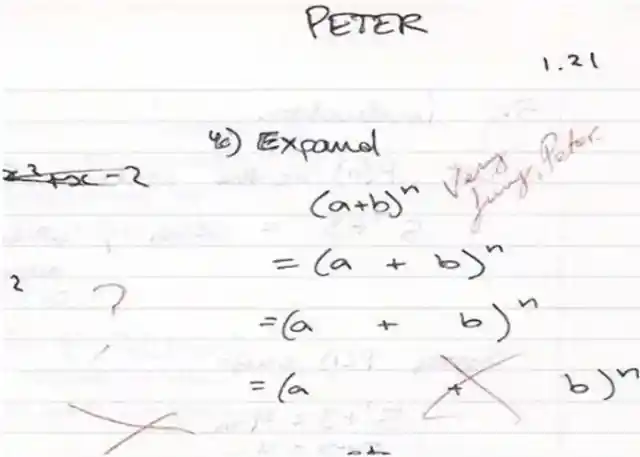 PETER
1.21
4c) Expand
x² + x - 2
Very funny, Peter.
(a+b)ⁿ
= (a + b)ⁿ
2
?
= (a + b)ⁿ
= (a + b)ⁿ
etc